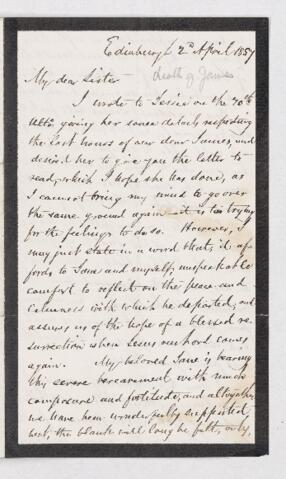 Edinburgh 2d April 1857
My dear Sister
death of James
I wrote to Jessie on the 30th
Ulto. giving her some details respecting
the last hours of our dear James, and
desired her to give you the letter to
read, which I hope she has done, as
I cannot bring my mind to go over
the same ground again - it is too trying
for the feelings to do so. However, I
may just state in a word that, it af-
fords to Jane and myself, unspeakable
comfort to reflect on the peace and
calmness with which he departed, and
assures us of the hope of a blessed re-
surrection when Jesus our Lord comes
again. My beloved Jane is bearing
this severe bereavement with much
composure and fortitude, and altogether
we have been wonderfully supported,
but, the blank will long be felt, only,